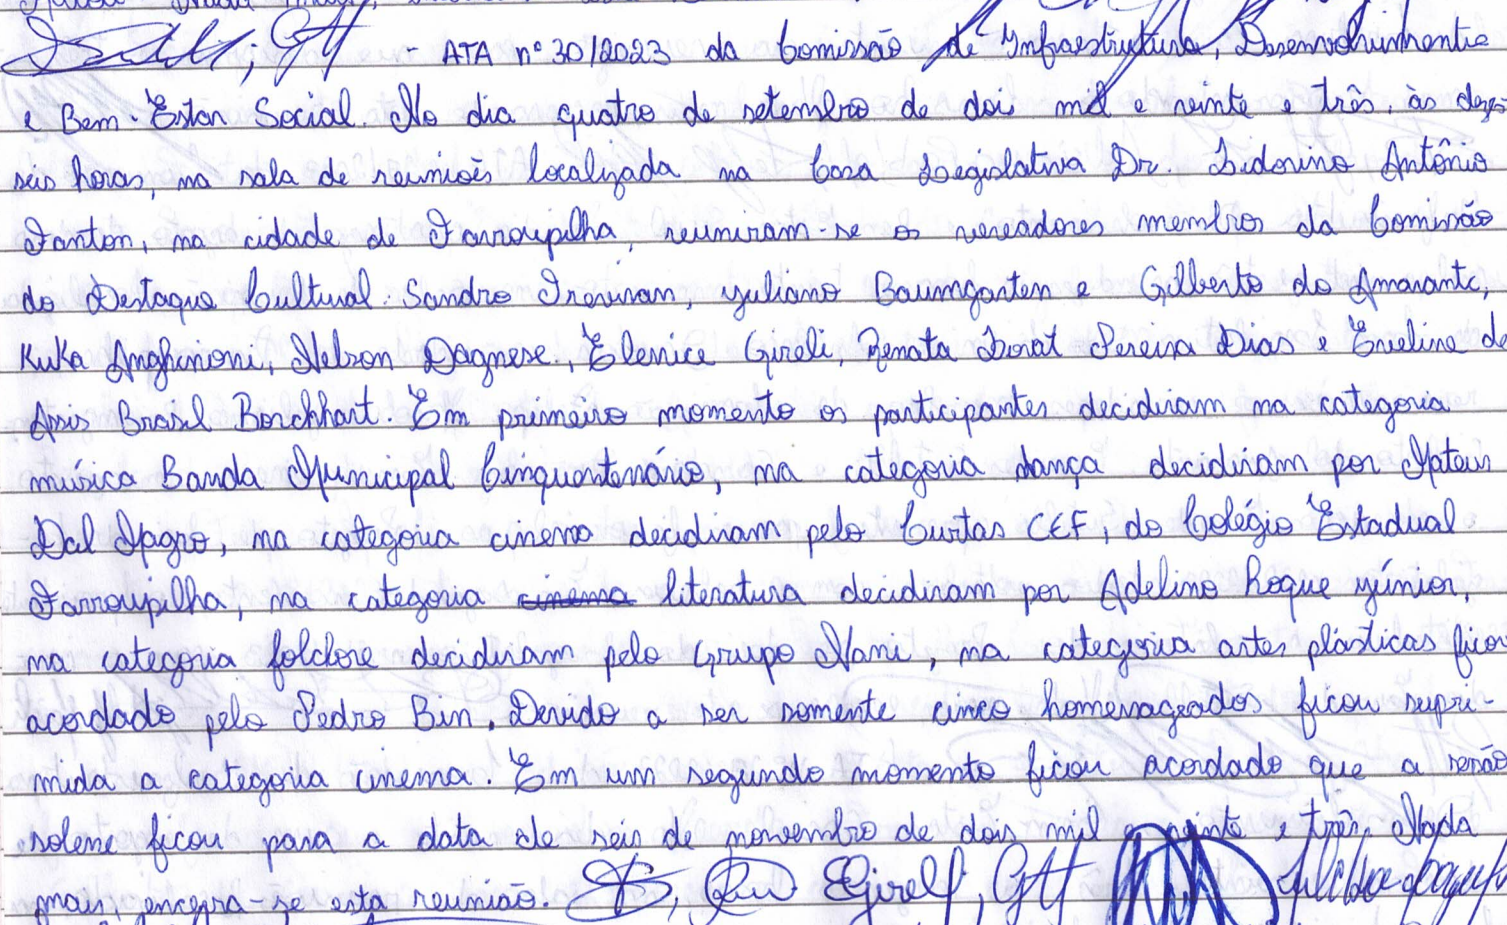 - ATA nº 30/2023 da Comissão de Infraestrutura, Desenvolvimento
e Bem-Estar Social. No dia quatro de setembro de dois mil e vinte e três, às dezes-
seis horas, na sala de reuniões localizada na Casa Legislativa Dr. Lidovino Antônio
Fanton, na cidade de Farroupilha, reuniram-se os vereadores membros da Comissão
do Destaque Cultural: Sandro Trevisan, Juliano Baumgarten e Gilberto do Amarante,
Kuka Anghinoni, Nelson Dagnese, Elenice Girelli, Renata Pereira Dias e Eveline de
Assis Brasil Borchhart. Em primeiro momento os participantes decidiram na categoria
música Banda Municipal Cinquentenário, na categoria dança decidiram por Mateus
Dal Magro, na categoria cinema decidiram pelo Curtas CEF, do Colégio Estadual
Farroupilha, na categoria cinema literatura decidiram por Adelino Roque Júnior,
na categoria folclore decidiram pelo Grupo Nani, na categoria artes plásticas ficou
acordado pelo Pedro Bin. Devido a ser somente cinco homenageados ficou supri-
mida a categoria cinema. Em um segundo momento ficou acordado que a sessão
solene ficou para a data de seis de novembro de dois mil e vinte e três. Nada
mais, encerra-se esta reunião.